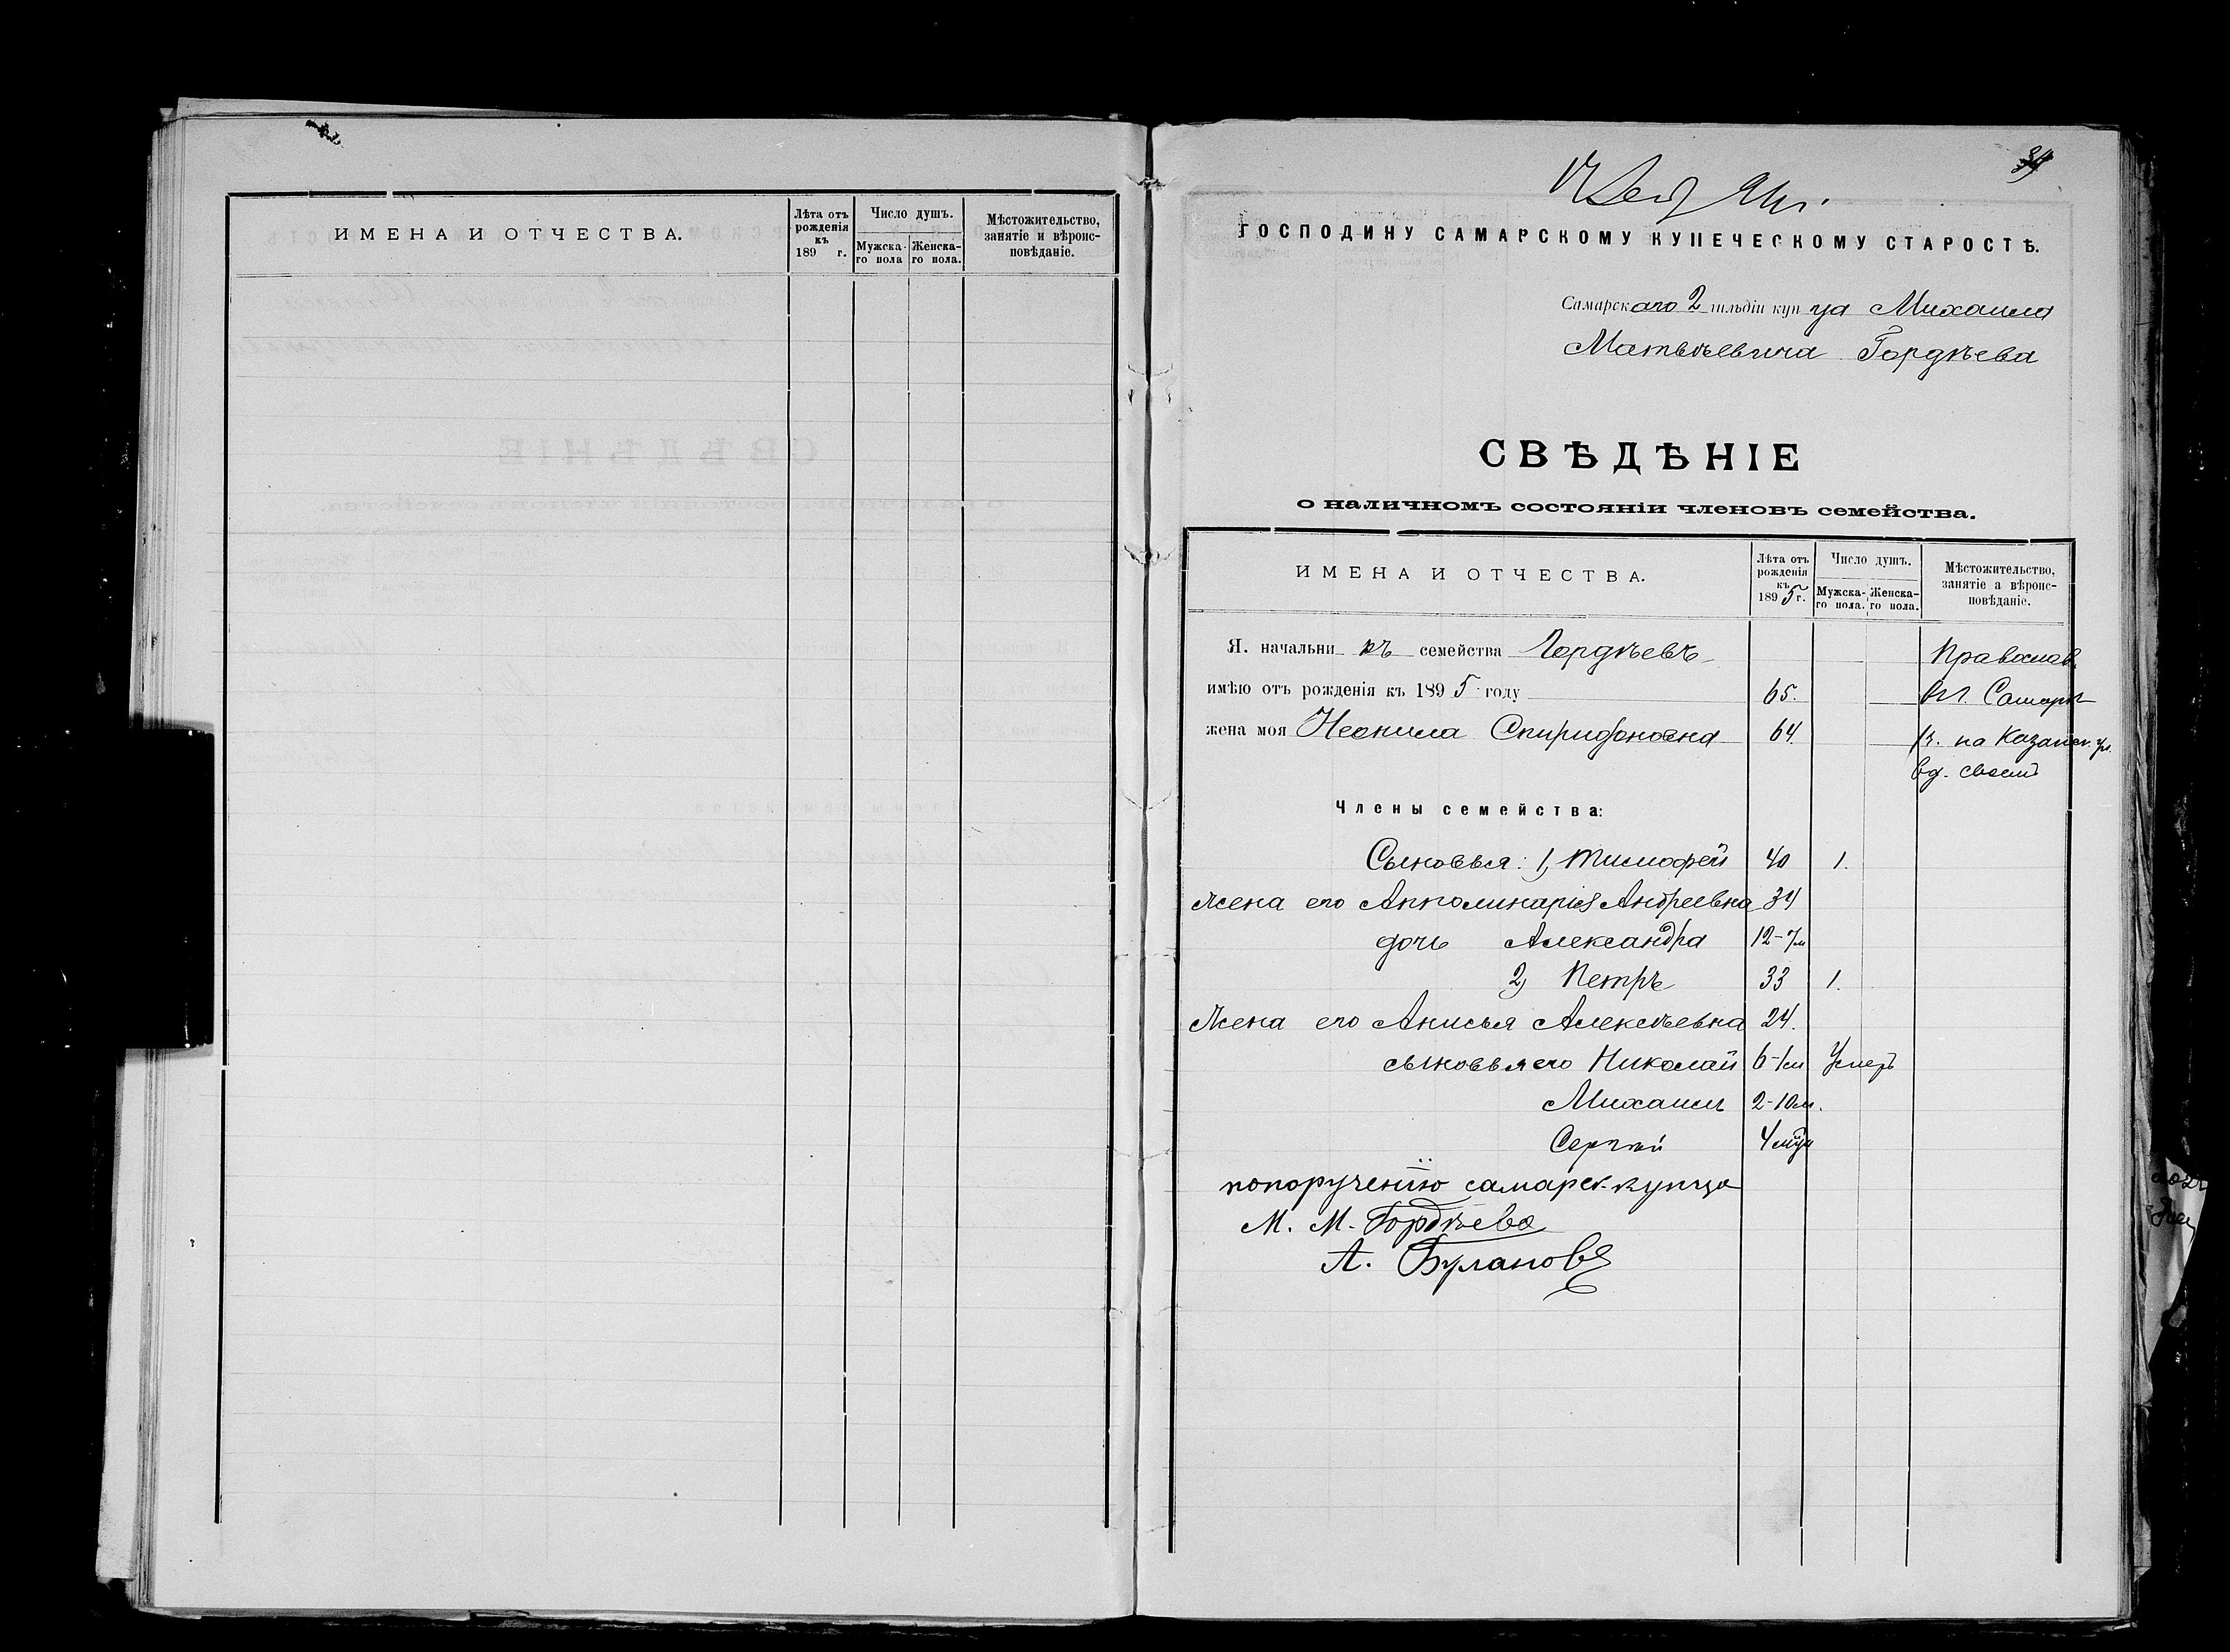 ИМЕНА И ОТЧЕСТВА.
Лѣта отъ рожденія къ 189 г.
Число душъ.
Мужска-го пола
Женска-го пола.
Мѣстожительство, занятіе и вѣроис-повѣданіе.
34
ГОСПОДИНУ САМАРСКОМУ КУПЕЧЕСКОМУ СТАРОСТѢ.
Самарскаго 2 гильдіи купца Михаила
Матвѣевича Гордѣева
СВѢДѢНІЕ
о наличномъ состояніи членовъ семейства.
ИМЕНА И ОТЧЕСТВА.
Лѣта отъ рожденія къ 1895 г.
Число душъ.
Мужска-го пола.
Женска-го пола.
Мѣстожительство, занятіе а вѣроис-повѣданіе.
Я. начальникъ семейства Гордѣевъ Православ
имѣю отъ рожденія къ 1895 году 65. вг. Самарѣ
жена моя Неонила Спиридоновна 64. на Казанск. ул.
вд. своемъ
Члены семейства:
Сыновья: 1, Тимофей 40 1.
Жена его Апполинарія Андреевна 34
дочь Александра 12-7м
2, Петръ 33 1.
Жена его Анисья Алексѣевна 24.
сыновья его Николай 6-1м Умеръ
Михаилъ 2-10м.
Сергѣй 4 мѣся
попорученію самарск. купца
М. М. Гордѣева
А. Булановъ